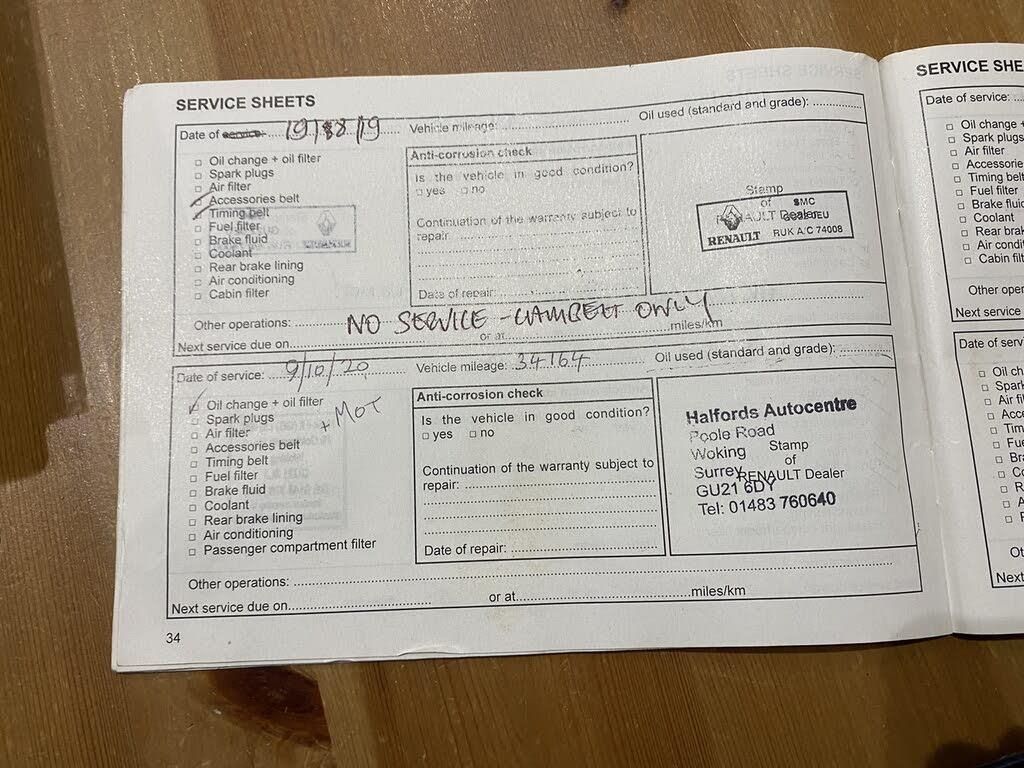 SERVICE SHEETS
Date of service: 19/8/19 Vehicle mileage: Oil used (standard and grade):
Oil change + oil filter
Spark plugs
Air filter
Accessories belt
Timing belt
Fuel filter
Brake fluid
Coolant
Rear brake lining
Air conditioning
Cabin filter
Anti-corrosion check
Is the vehicle in good condition?
yes no
Continuation of the warranty subject to
repair:
Date of repair:
Stamp
of
RENAULT Dealer
SMC
RENAULT RUK A/C 74008
Other operations: NO SERVICE - CAMBELT ONLY
Next service due on or at miles/km
Date of service: 9/10/20 Vehicle mileage: 34164 Oil used (standard and grade):
Oil change + oil filter
+ MOT
Spark plugs
Air filter
Accessories belt
Timing belt
Fuel filter
Brake fluid
Coolant
Rear brake lining
Air conditioning
Passenger compartment filter
Anti-corrosion check
Is the vehicle in good condition?
yes no
Continuation of the warranty subject to
repair:
Date of repair:
Halfords Autocentre
Poole Road
Woking
Surrey
GU21 6DY
Tel: 01483 760640
Stamp
of
RENAULT Dealer
Other operations:
Next service due on or at miles/km
34
SERVICE SHE
Date of service:
Oil change
Spark plugs
Air filter
Accessorie
Timing belt
Fuel filter
Brake fluid
Coolant
Rear brak
Air condit
Cabin filt
Other oper
Next service
Date of servi
Oil ch
Spark
Air fil
Acce
Tim
Fue
Bra
Co
R
A
Ot
Next